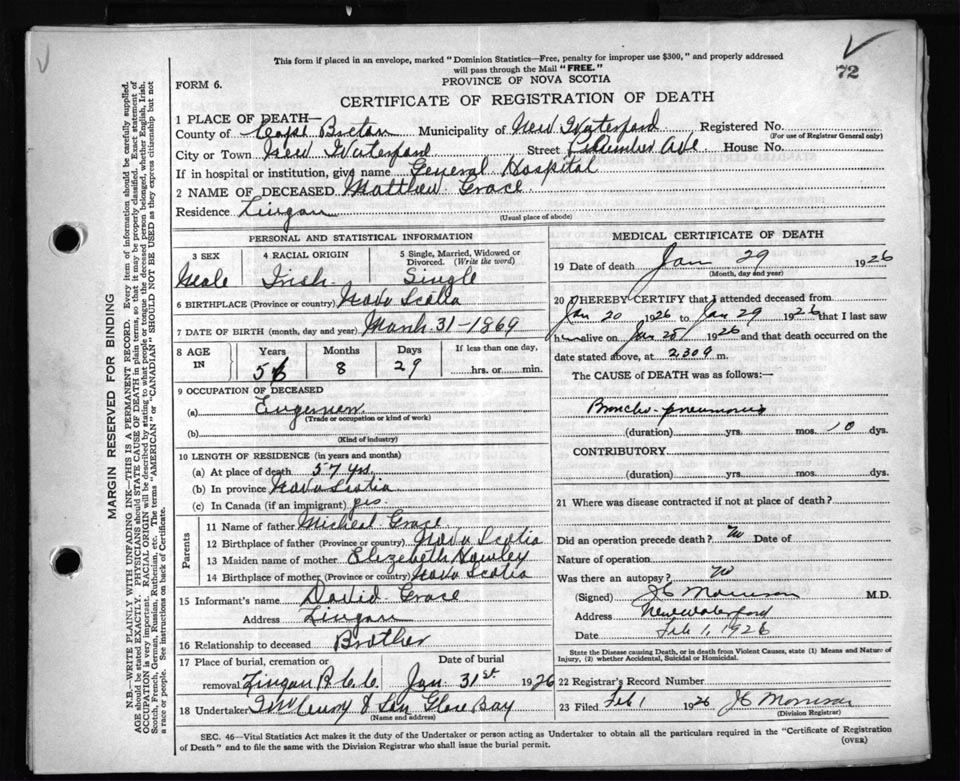 This form if placed in an envelope, marked "Dominion Statistics—Free, penalty for improper use $300," and properly addressed
will pass through the Mail "FREE."
72
FORM 6.
PROVINCE OF NOVA SCOTIA
CERTIFICATE OF REGISTRATION OF DEATH
1 PLACE OF DEATH—
County of Cape Breton Municipality of New Waterford Registered No.
(For use of Registrar General only)
City or Town New Waterford Street Plummer Ave House No.
If in hospital or institution, give name General Hospital
2 NAME OF DECEASED Matthew Grace
Residence Lingan
(Usual place of abode)
PERSONAL AND STATISTICAL INFORMATION
3 SEX 4 RACIAL ORIGIN 5 Single, Married, Widowed or Divorced. (Write the word)
Male Irish Single
6 BIRTHPLACE (Province or country) Nova Scotia
7 DATE OF BIRTH (month, day and year) March 31-1869
8 AGE IN Years Months Days If less than one day,
8 29 hrs. or min.
9 OCCUPATION OF DECEASED
(a)
(Trade or occupation or kind of work)
(b)
(Kind of industry)
10 LENGTH OF RESIDENCE (in years and months)
(a) At place of death 57 yrs
(b) In province Nova Scotia
(c) In Canada (if an immigrant) yes
Parents
11 Name of father Micheal Grace
12 Birthplace of father (Province or country) Nova Scotia
13 Maiden name of mother Elizabeth Hawley
14 Birthplace of mother (Province or country) Nova Scotia
15 Informant's name David Grace
Address Lingan
16 Relationship to deceased Brother
17 Place of burial, cremation or Date of burial
removal Lingan R.C.C. Jan. 31st 1926
18 Undertaker & Son Glace Bay
(Name and address)
MEDICAL CERTIFICATE OF DEATH
19 Date of death Jan 29 1926
(Month, day and year)
20 I HEREBY CERTIFY that I attended deceased from
Jan 20 1926 to Jan 29 1926 that I last saw
him alive on Jan 28 1926 and that death occurred on the
date stated above, at 2.30 m.
The CAUSE of DEATH was as follows:—
Broncho-pneumonia
(duration) yrs. mos. 10 dys.
CONTRIBUTORY
(duration) yrs. mos. dys.
21 Where was disease contracted if not at place of death?
Did an operation precede death? no Date of
Nature of operation
Was there an autopsy? no
(Signed) J C Morrison M.D.
Address New Waterford
Date Feb 1, 1926
State the Disease causing Death, or in death from Violent Causes, state (1) Means and Nature of
Injury, (2) whether Accidental, Suicidal or Homicidal.
22 Registrar's Record Number
23 Filed Feb 1 1926 J C Morrison
(Division Registrar)
SEC. 46—Vital Statistics Act makes it the duty of the Undertaker or person acting as Undertaker to obtain all the particulars required in the "Certificate of Registration
of Death" and to file the same with the Division Registrar who shall issue the burial permit.
(OVER)
MARGIN RESERVED FOR BINDING
N.B.—WRITE PLAINLY, WITH UNFADING INK—THIS IS A PERMANENT RECORD. Every item of information should be carefully supplied.
AGE should be stated EXACTLY. PHYSICIANS should STATE CAUSE OF DEATH in plain terms, so that it may be properly classified. Exact statement of
OCCUPATION is very important. RACIAL ORIGIN will be described by stating to what people, or race the deceased person belonged, whether English, Irish,
Scotch, French, German, Russian, Ruthenian, etc. The terms "AMERICAN" or "CANADIAN" SHOULD NOT BE USED as they express citizenship but not
a race or people. See instructions on back of Certificate.